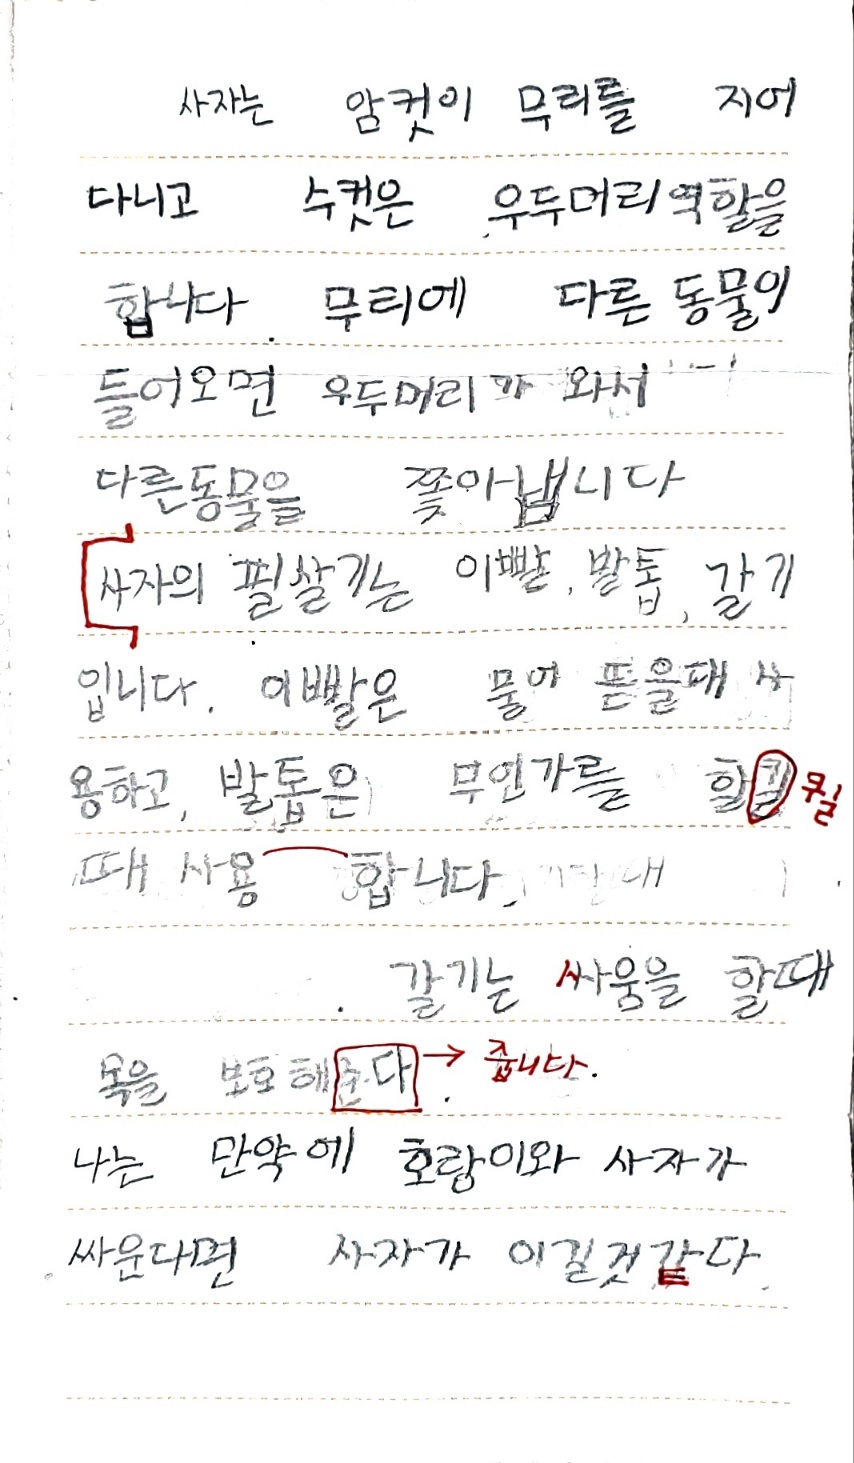 사자는 암컷이 무리를 지어
다니고 수컷은 우두머리 역할을
합니다. 무리에 다른 동물이
들어오면 우두머리가 와서
다른동물을 쫓아냅니다
사자의 필살기는 이빨, 발톱, 갈기
입니다. 이빨은 물어 뜯을때 사
용하고, 발톱은 무언가를 할킬 퀼
때 사용 합니다.
갈기는 싸움을 할때
목을 보호해준다 → 줍니다.
나는 만약에 호랑이와 사자가
싸운다면 사자가 이길것 같다.